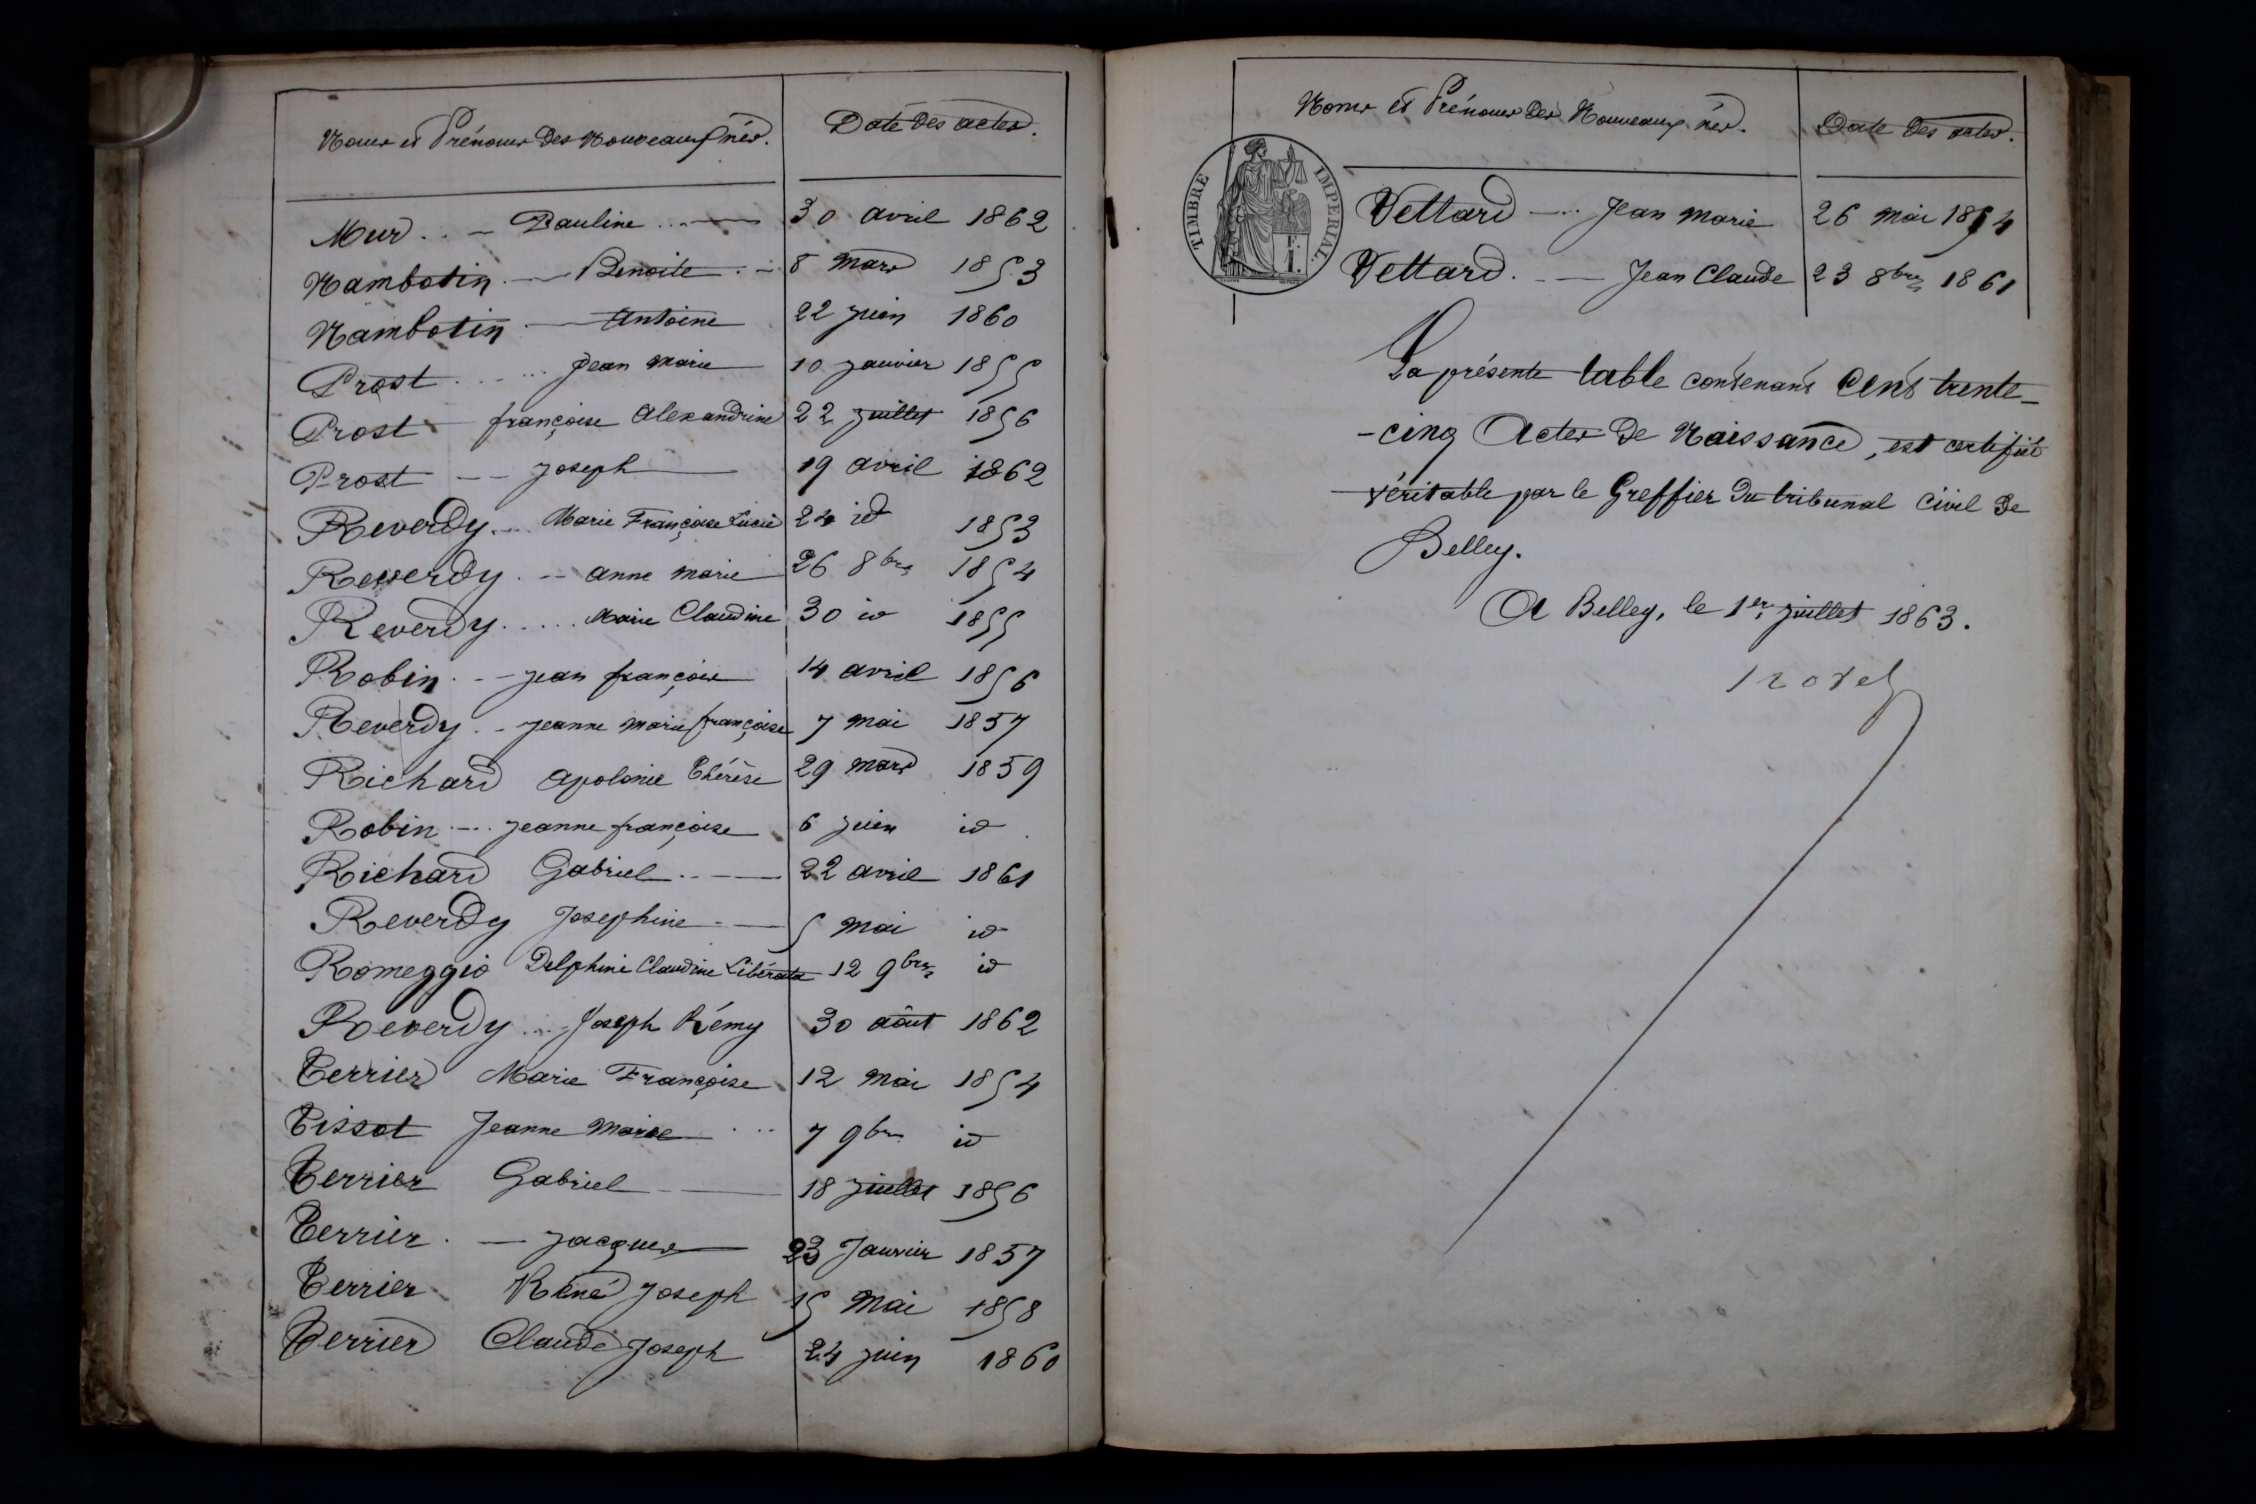 Noms et Prénoms des Nouveaux nés. Date des actes.
Mur Pauline 30 avril 1862
Nambotin Benoite 8 mars 1853
Nambotin Antoine 22 juin 1860
Prost Jean Marie 10 janvier 1855
Prost françoise Alexandrine 22 juillet 1856
Prost Joseph 19 avril 1862
Reverdy Marie Françoise Lucie 24 id 1853
Reverdy anne marie 26 8bre 1854
Reverdy Marie Claudine 30 id 1855
Robin Jean françois 14 avril 1856
Reverdy Jeanne marie françoise 7 mai 1857
Richard Apolonie Thérèse 29 mars 1859
Robin Jeanne françoise 6 juin id
Richard Gabriel 22 avril 1861
Reverdy Josephine 5 mai id
Romeggio Delphine Claudine Libérata 12 9bre id
Reverdy Joseph Rémy 30 août 1862
Terrier Marie Françoise 12 mai 1854
Tissot Jeanne Marie 7 9bre id
Terrier Gabriel 18 juillet 1856
Terrier Jacques 23 Janvier 1857
Terrier Réné Joseph 15 mai 1858
Terrier Claude Joseph 24 juin 1860
Noms et Prénoms des Nouveaux nés. Date des actes.
TIMBRE IMPERIAL.
Vettard Jean Marie 26 mai 1854
Vettard Jean Claude 23 8bre 1861
La présente table contenant cent trente-
-cinq Actes de Naissance, est certifiée
véritable par le Greffier du tribunal civil de
Belley.
A Belley, le 1er juillet 1863.